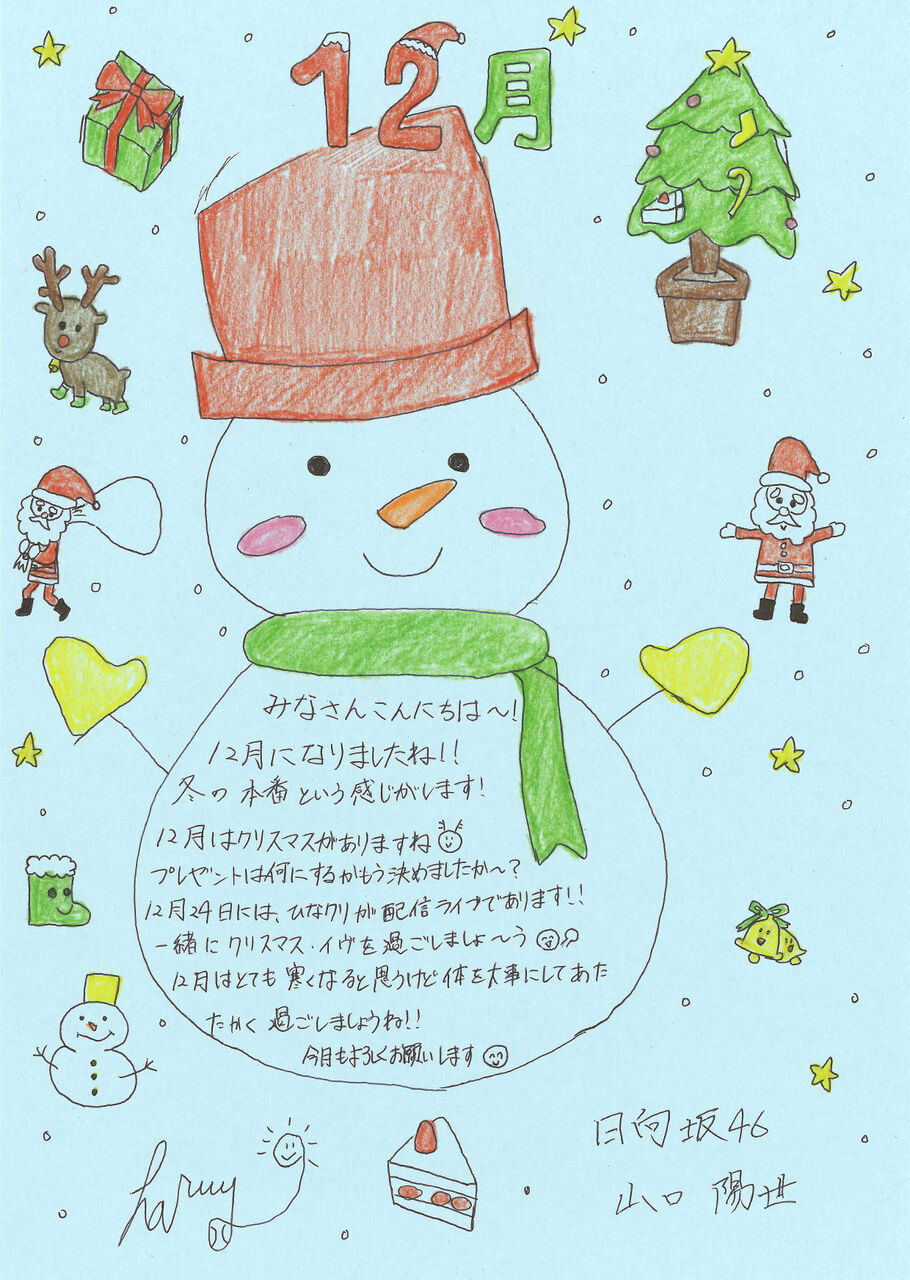 12月
みなさんこんにちは〜!
12月になりましたね!!
冬の本番という感じがします!
12月はクリスマスがありますね
プレゼントは何にするかもう決めましたか〜?
12月24日には、ひなクリが配信ライブであります!!
一緒にクリスマス・イヴを過ごしましょ〜う
12月はとても寒くなると思うけど体を大事にしてあた
たかく過ごしましょうね!!
今月もよろしくお願いします
haruy
日向坂46
山口陽世